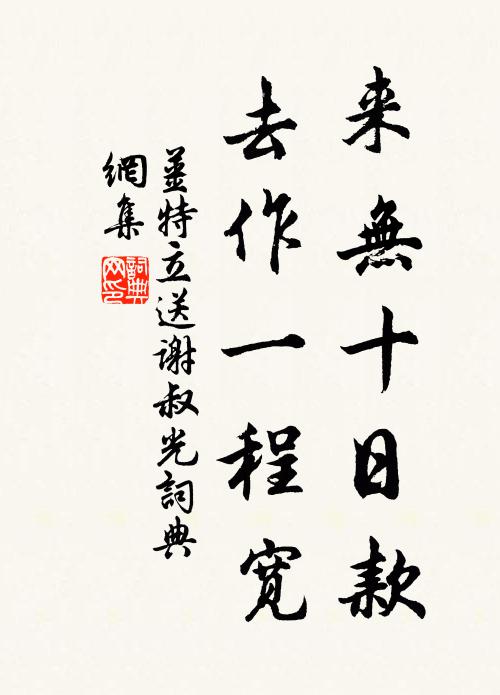 来無十日款
去作一程寬
姜特立送谢叔光詞典
網集
詞典
网印